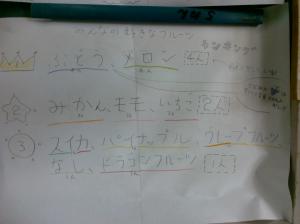 みんなのすきなフルーツ
ランキング
ぶどう、メロン 4人
2 みかん、モモ、いちご 2人
3 スイカ、パイナップル、グレープフルーツ、
なし、ドラゴンフルーツ 1人